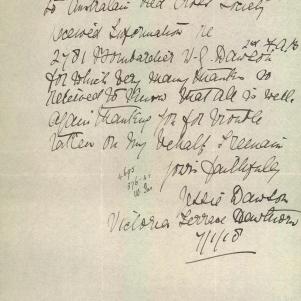 to Australian Red Cross Society
received Information re
2781 Bombardier V.G. Dawson 2nd F.A.B
for which very many thanks so
relieved to know that all is well.
again thanking you for trouble
taken on my behalf I remain
yours faithfully
Jessie Dawson
Victoria Terrace Hawthorn
7/1/18